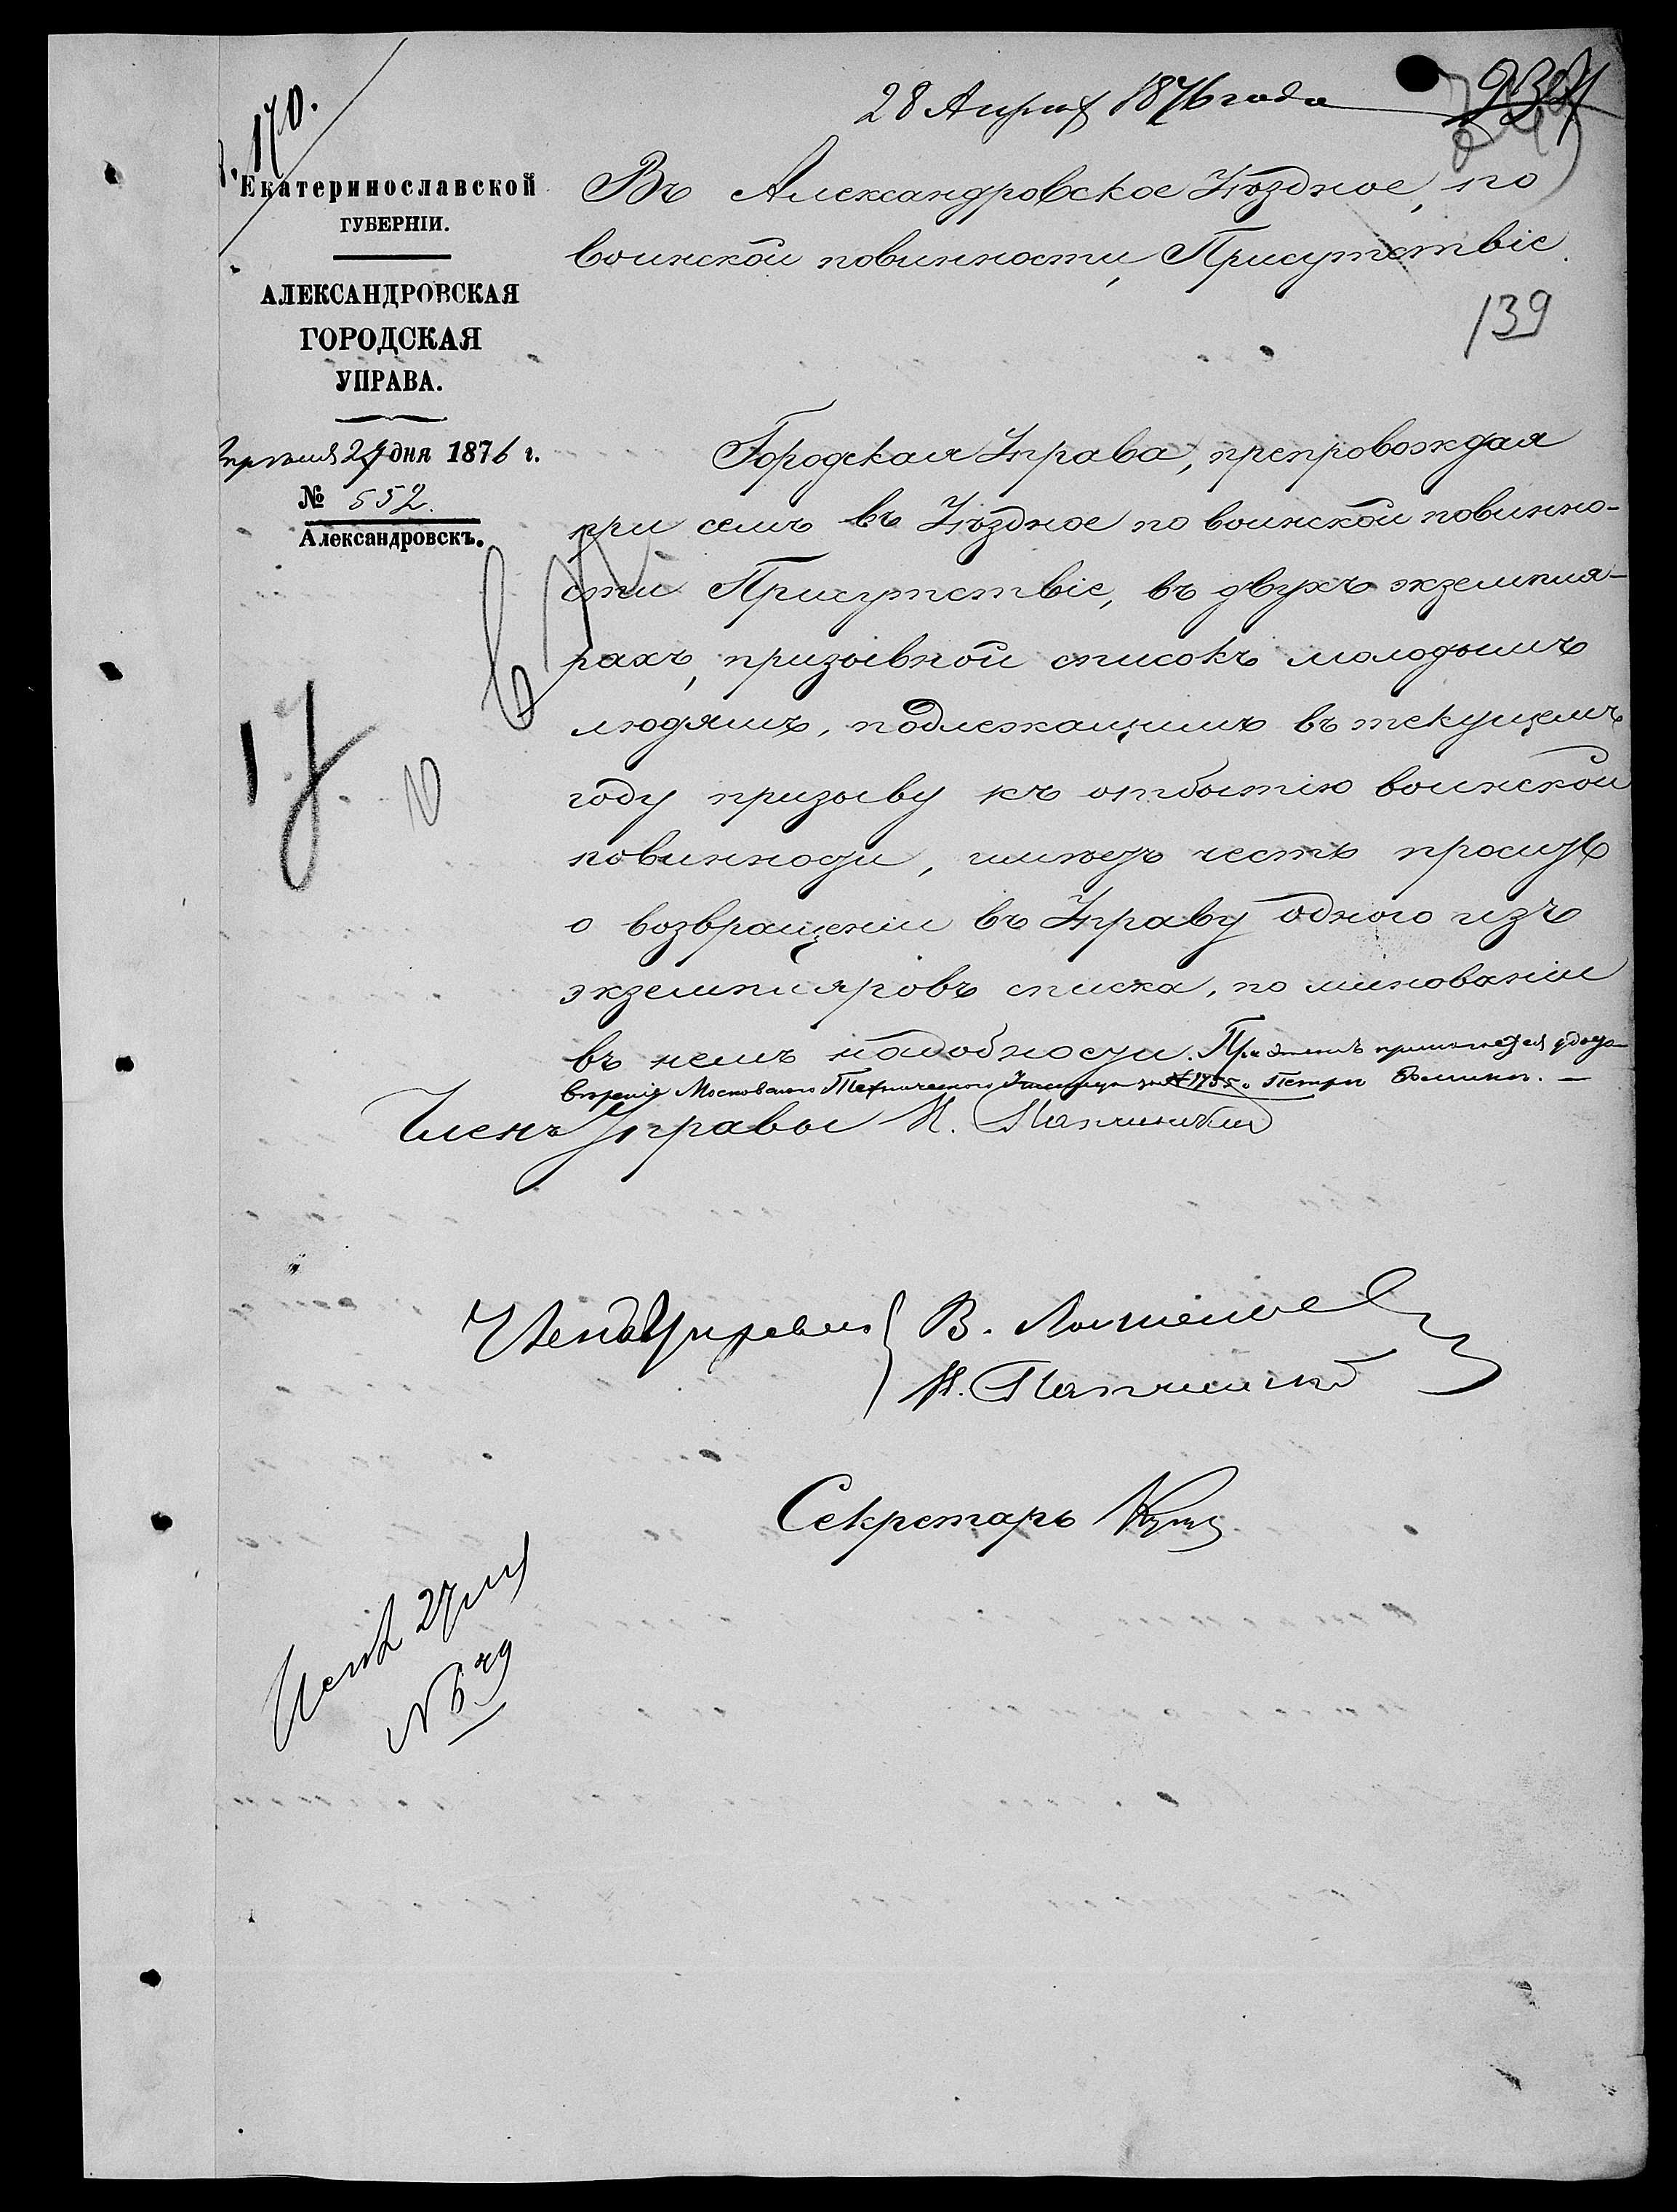 28 Апрѣля 1876 года
170.
Екатеринославской
ГУБЕРНІИ.
АЛЕКСАНДРОВСКАЯ
ГОРОДСКАЯ
УПРАВА.
Апрѣля 27 дня 1876 г.
№ 552.
Александровскъ.
Въ Александровское Уѣздное, по
воинской повинности, Присутствіе.
139
Городская Управа, препровождая
при семъ въ Уѣздное по воинской повинно-
сти Присутствіе, въ двухъ экземпля-
рахъ, призывной списокъ молодымъ
людямъ, подлежащимъ въ текущемъ
году призыву къ отбытію воинской
повинности, имѣетъ честь просить
о возвращеніи въ Управу одного изъ
экземпляровъ списка, по минованіи
въ немъ надобности. При этомъ прилагается удосто-
вѣреніе Московскаго Техническаго Училища за № 1755. Петра
Членъ Управы И.
Члены Управы В.
И.
Секретарь
17.
10
Исп. 27
№ 679